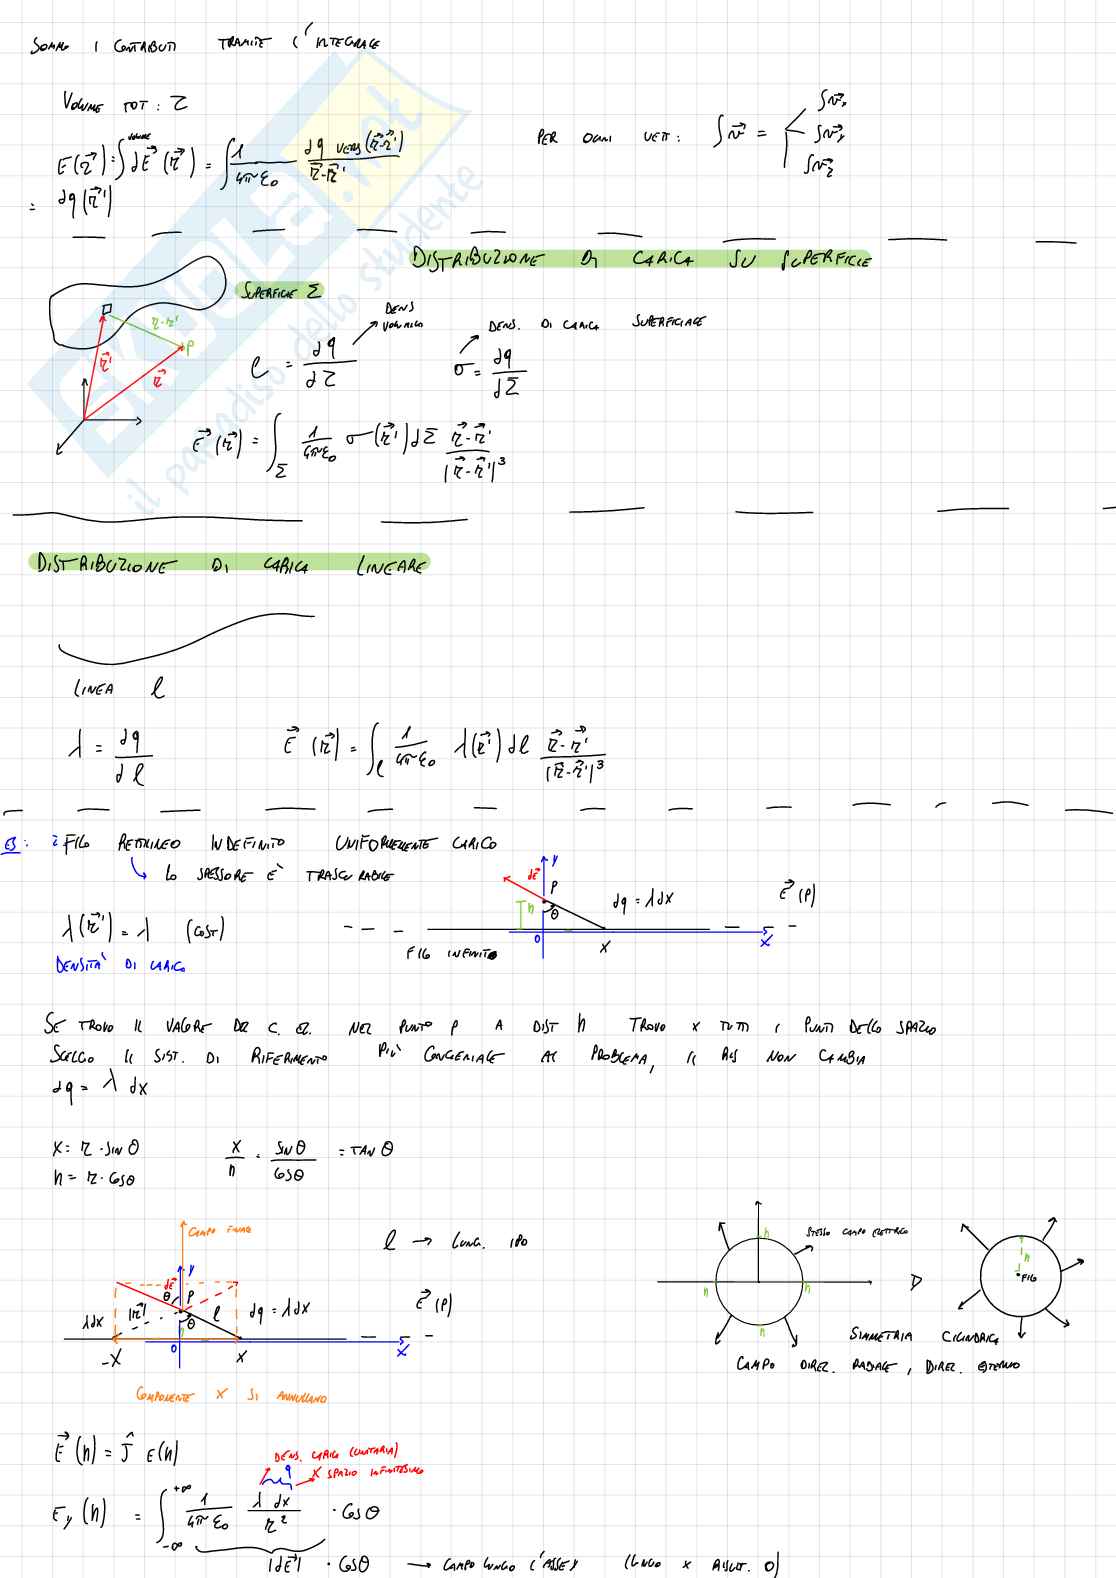 SOMMO I CONTRIBUTI TRAMITE L'INTEGRALE
VOLUME TOT: τ
E(r⃗) = ∫^volume dE⃗(r⃗) = ∫ 1/4πε₀ dq vers(r⃗-r⃗')/r⃗-r⃗'
= dq(r⃗')
PER OGNI VETT: ∫v⃗ = ∫vₓ ∫vᵧ ∫v_z
DISTRIBUZIONE DI CARICA SU SUPERFICIE
SUPERFICIE Σ
r-r'
P
r⃗'
r⃗
DENS VOLUMICA
ρ = dq/dτ
DENS. DI CARICA SUPERFICIALE
σ = dq/dΣ
E⃗(r⃗) = ∫_Σ 1/4πε₀ σ(r⃗')dΣ r⃗-r⃗'/|r⃗-r⃗'|³
DISTRIBUZIONE DI CARICA LINEARE
LINEA ℓ
λ = dq/dℓ
E⃗(r⃗) = ∫_ℓ 1/4πε₀ λ(r⃗')dℓ r⃗-r⃗'/|r⃗-r⃗'|³
ES: FILO RETTILINEO INDEFINITO UNIFORMEMENTE CARICO
LO SPESSORE È TRASCURABILE
λ(r⃗') = λ (COST)
DENSITÀ DI CARICA
y
dE⃗
P
h
θ
dq = λdx
E⃗(P)
0
x
X
FILO INFINITO
SE TROVO IL VALORE DEL C. EL. NEL PUNTO P A DIST h TROVO x TUTTI I PUNTI DELLO SPAZIO
SCELGO IL SIST. DI RIFERIMENTO PIÙ CONGENIALE AL PROBLEMA, IL RIS NON CAMBIA
dq = λ dx
x = r·sin θ
h = r·cosθ
x/h = sinθ/cosθ = TAN θ
CAMPO FINALE
y
dE⃗
θ
P
|r⃗'|
θ
ℓ
λdx
dq = λdx
E⃗(P)
-X
0
X
x
COMPONENTE X SI ANNULLANO
ℓ → LUNG. IPO
h
h
h
h
STESSO CAMPO ELETTRICO
h
FILO
SIMMETRIA CILINDRICA
CAMPO DIREZ. RADIALE, DIREZ. ESTERNO
E⃗(h) = ĵ E(h)
DENS. CARICA (UNITARIA)
X SPAZIO INFINITESIMO
q
Eᵧ(h) = ∫_-∞^+∞ 1/4πε₀ λ dx/r² · cosθ
|dE⃗| · cosθ → CAMPO LUNGO L'ASSE y (LUNGO x RISULT. 0)
SKUOLA.net
il paradiso dello studente